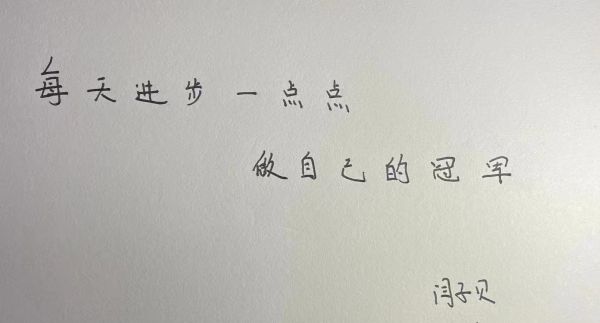 每天进步一点点
做自己的冠军
闫子贝